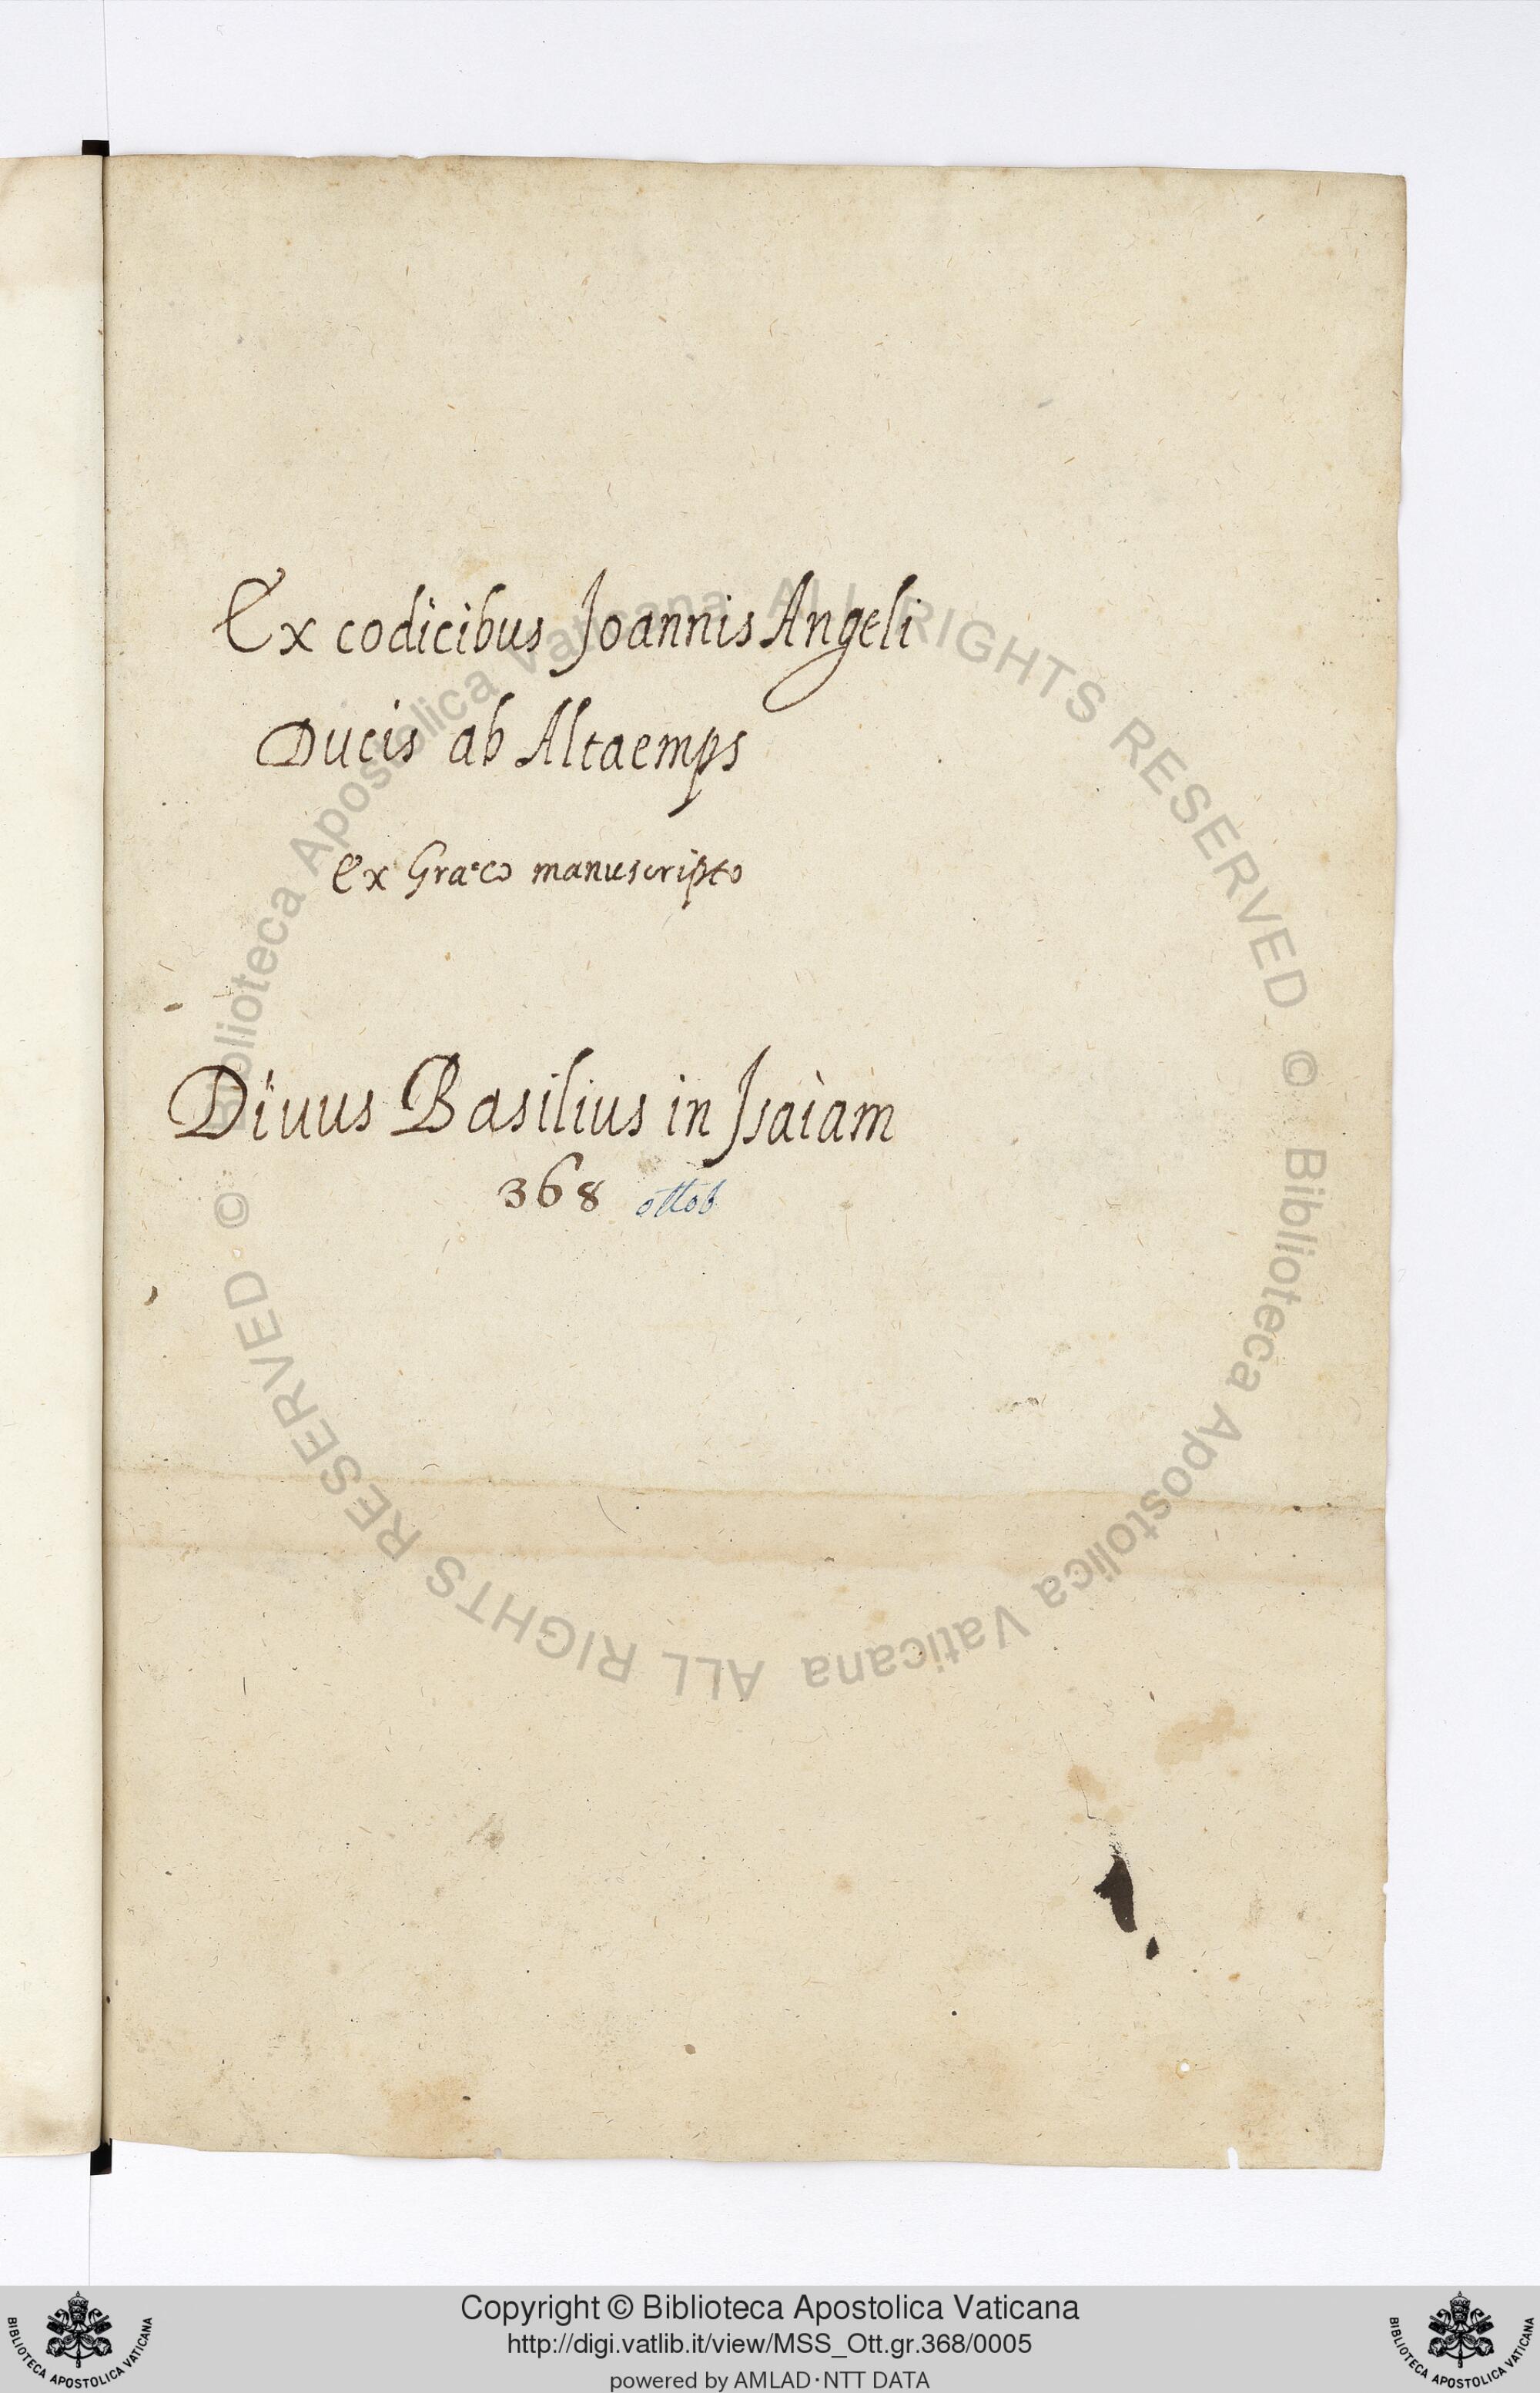 Ex codicibus Joannis Angeli
Ducis ab Altaemps
Ex Graeco manuscripto
Divus Basilius in Isaiam
368 ottob
© Biblioteca Apostolica Vaticana ALL RIGHTS RESERVED
© Biblioteca Apostolica Vaticana ALL RIGHTS RESERVED
Copyright © Biblioteca Apostolica Vaticana
http://digi.vatlib.it/view/MSS_Ott.gr.368/0005
powered by AMLAD·NTT DATA
BIBLIOTECA APOSTOLICA VATICANA
BIBLIOTECA APOSTOLICA VATICANA